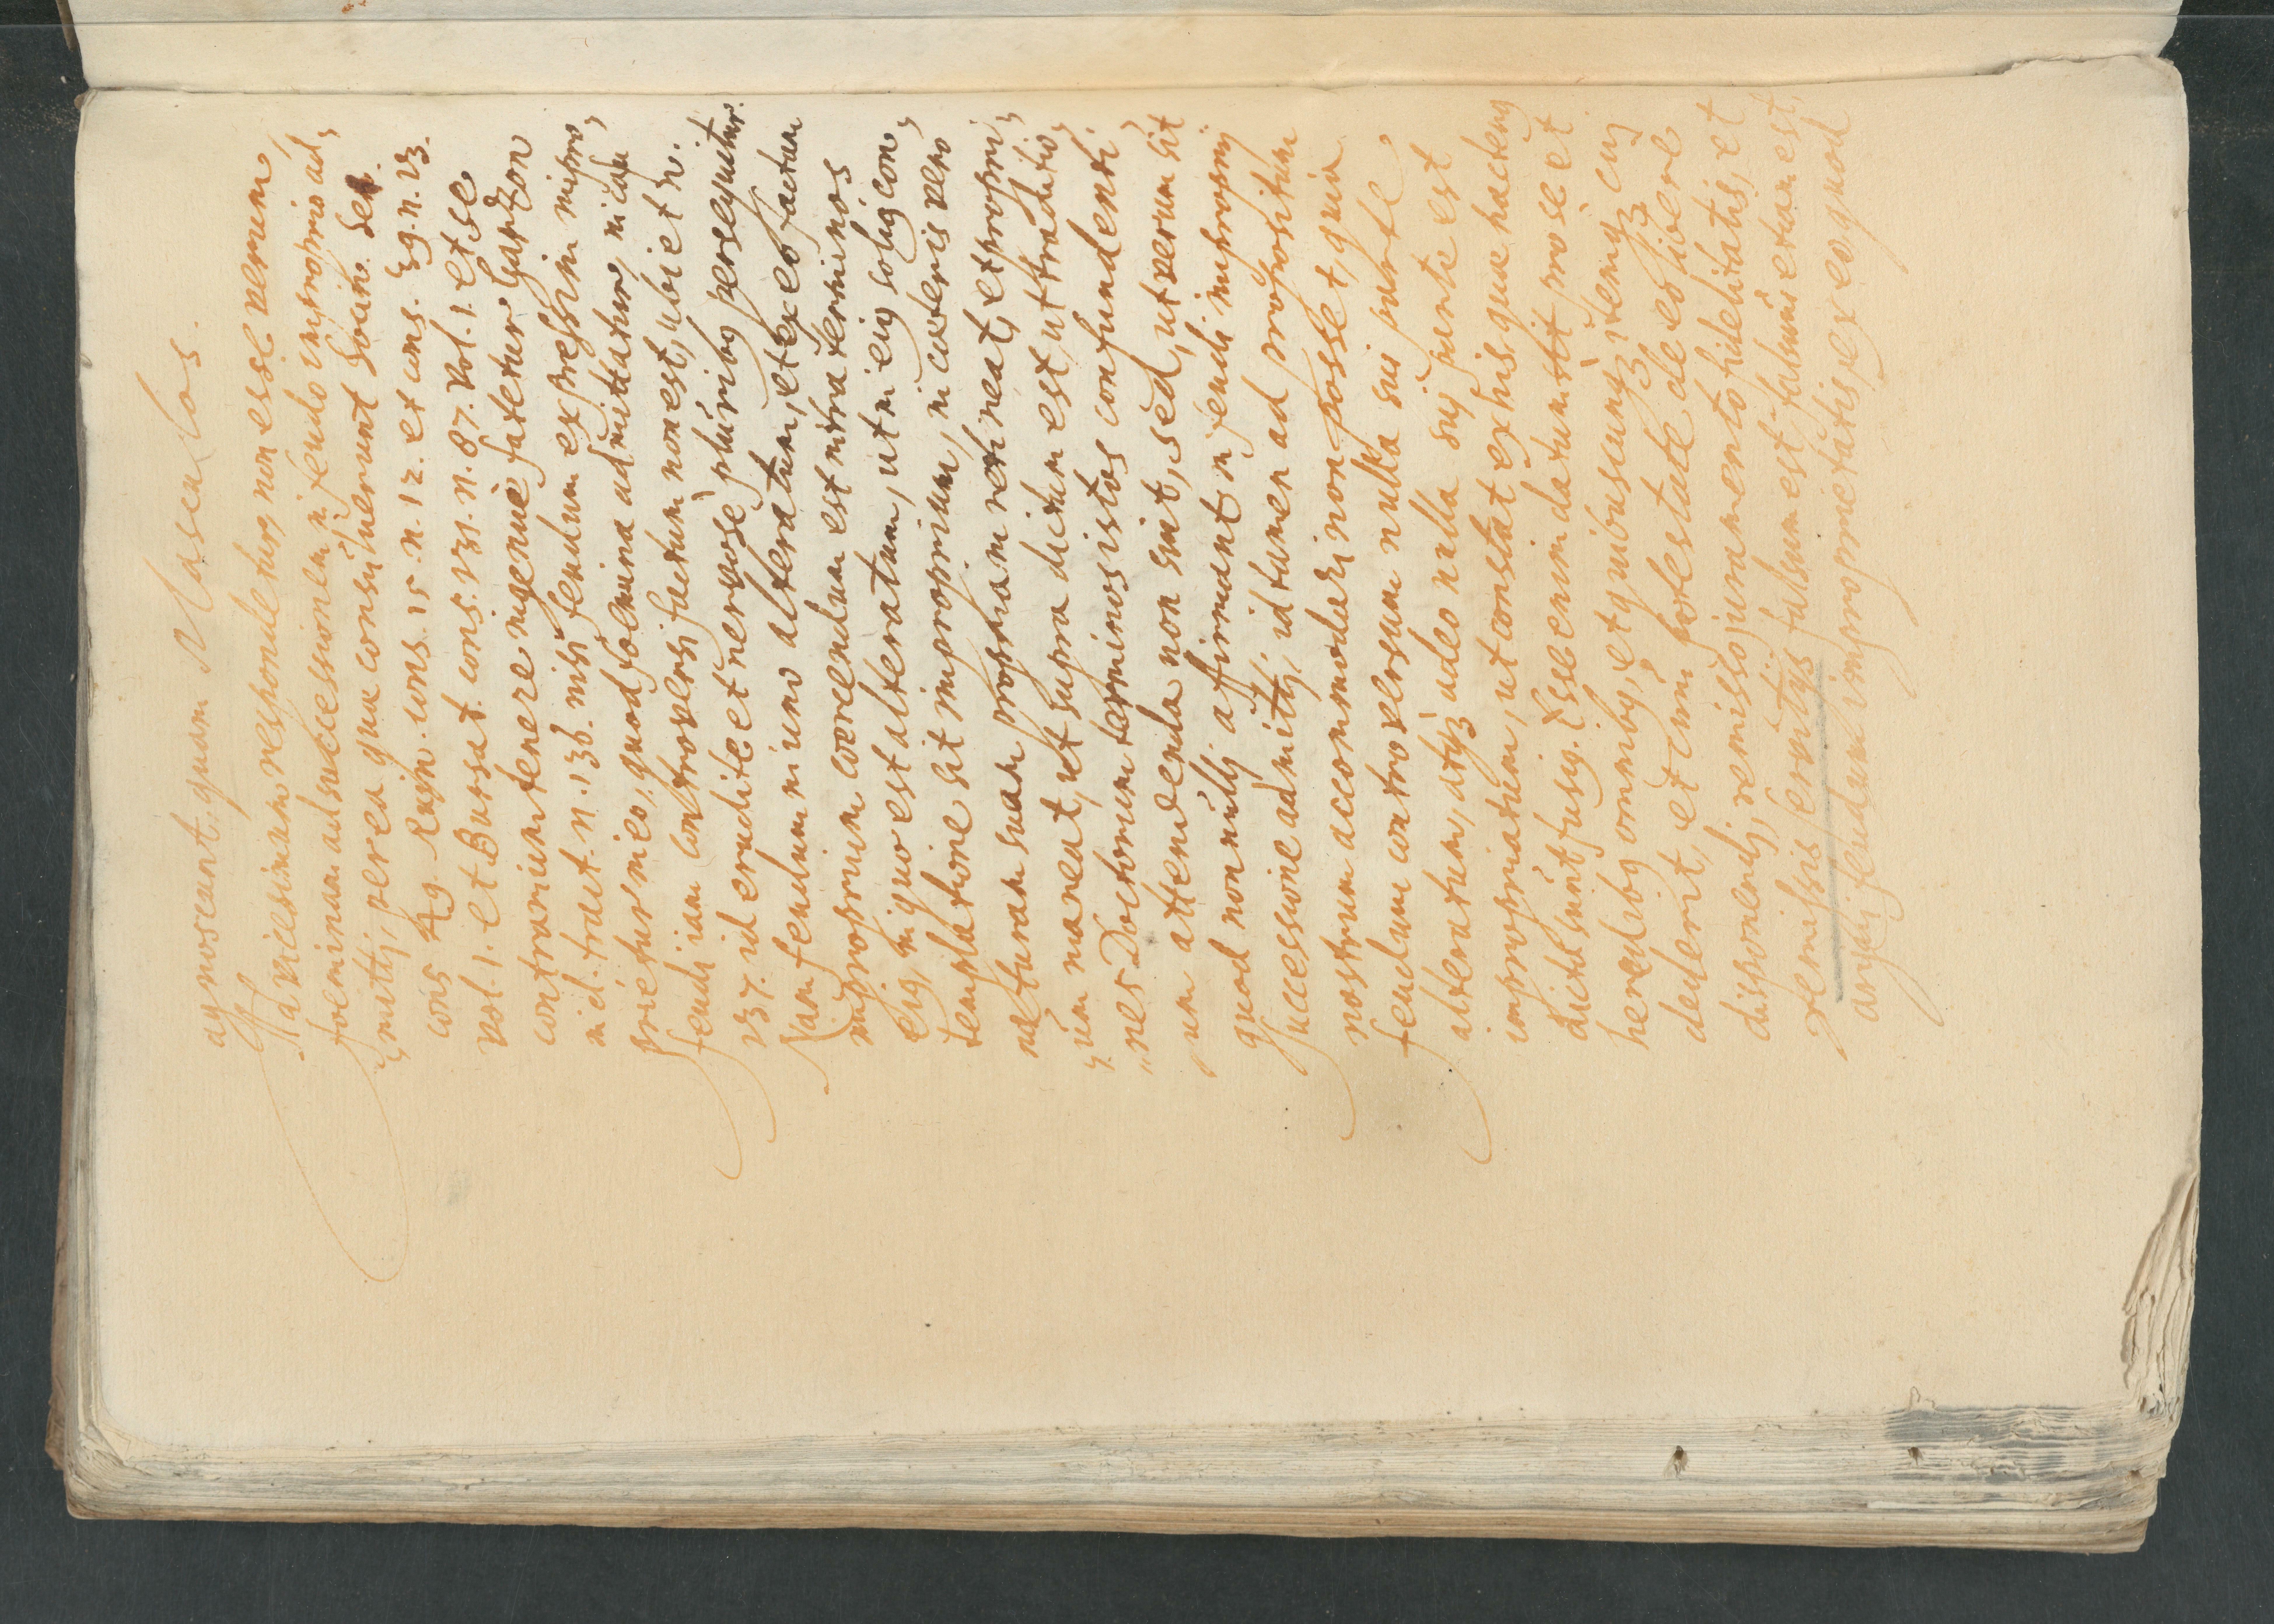 agnoscant, quam Masculos.
Ad vicesimam respondetur, non esse verum
foeminam ad successionem in feudo improprio ad,
,mitti, per ea quae consuluerunt Socin. Sen.
cons 49. Ruin. cons. 15 n. 12. et cons. 39. n. 23.
vol. 1. et Bursat. cons. 131. n. 87. vol. 1. et se
contrarium tenere ingenue fatetur Garzon
in d. tract. n. 136. nisi feudum expressim impro,
prietur in eo, quod foemina admittatur, in casu
feudi iam controversi factum non est, ubi et n.
137. id erudite et nervose pluribus persequitur.
Nam feudum in uno alteratum, et ex eo factum
improprium coercendum est intra terminos
eius, in quo est alteratum, ut in eius solius con,
templatione sit improprium, in caeteris vero
naturam suam propriam retineat, et propri,
,um maneat, ut supra dictum est, ut traditio,
,nes Doctorum terminos istos confundenti,
,um attendenda non sint, sed, ut verum sit
quod nonnulli afirmant in feudi improprij
successione admitti, id tamen ad propositum
nostrum accommodari non posset, quia
feudum controversum nulla sui parte
alteratum, atque adeo nulla sui parte est
impropriatum, ut constat ex his, quae hactenus
dicta sunt fusius. Esse enim datum sit pro se et
heredibus omnibus, et quibuscunque, itemque cui
dederit, et cum potestate de eo libere
disponendi, remisso juramento fidelitatis, et
remissis servitijs falsum est, falsum etiam est,
argui feudum improprietatis, ex eo quod